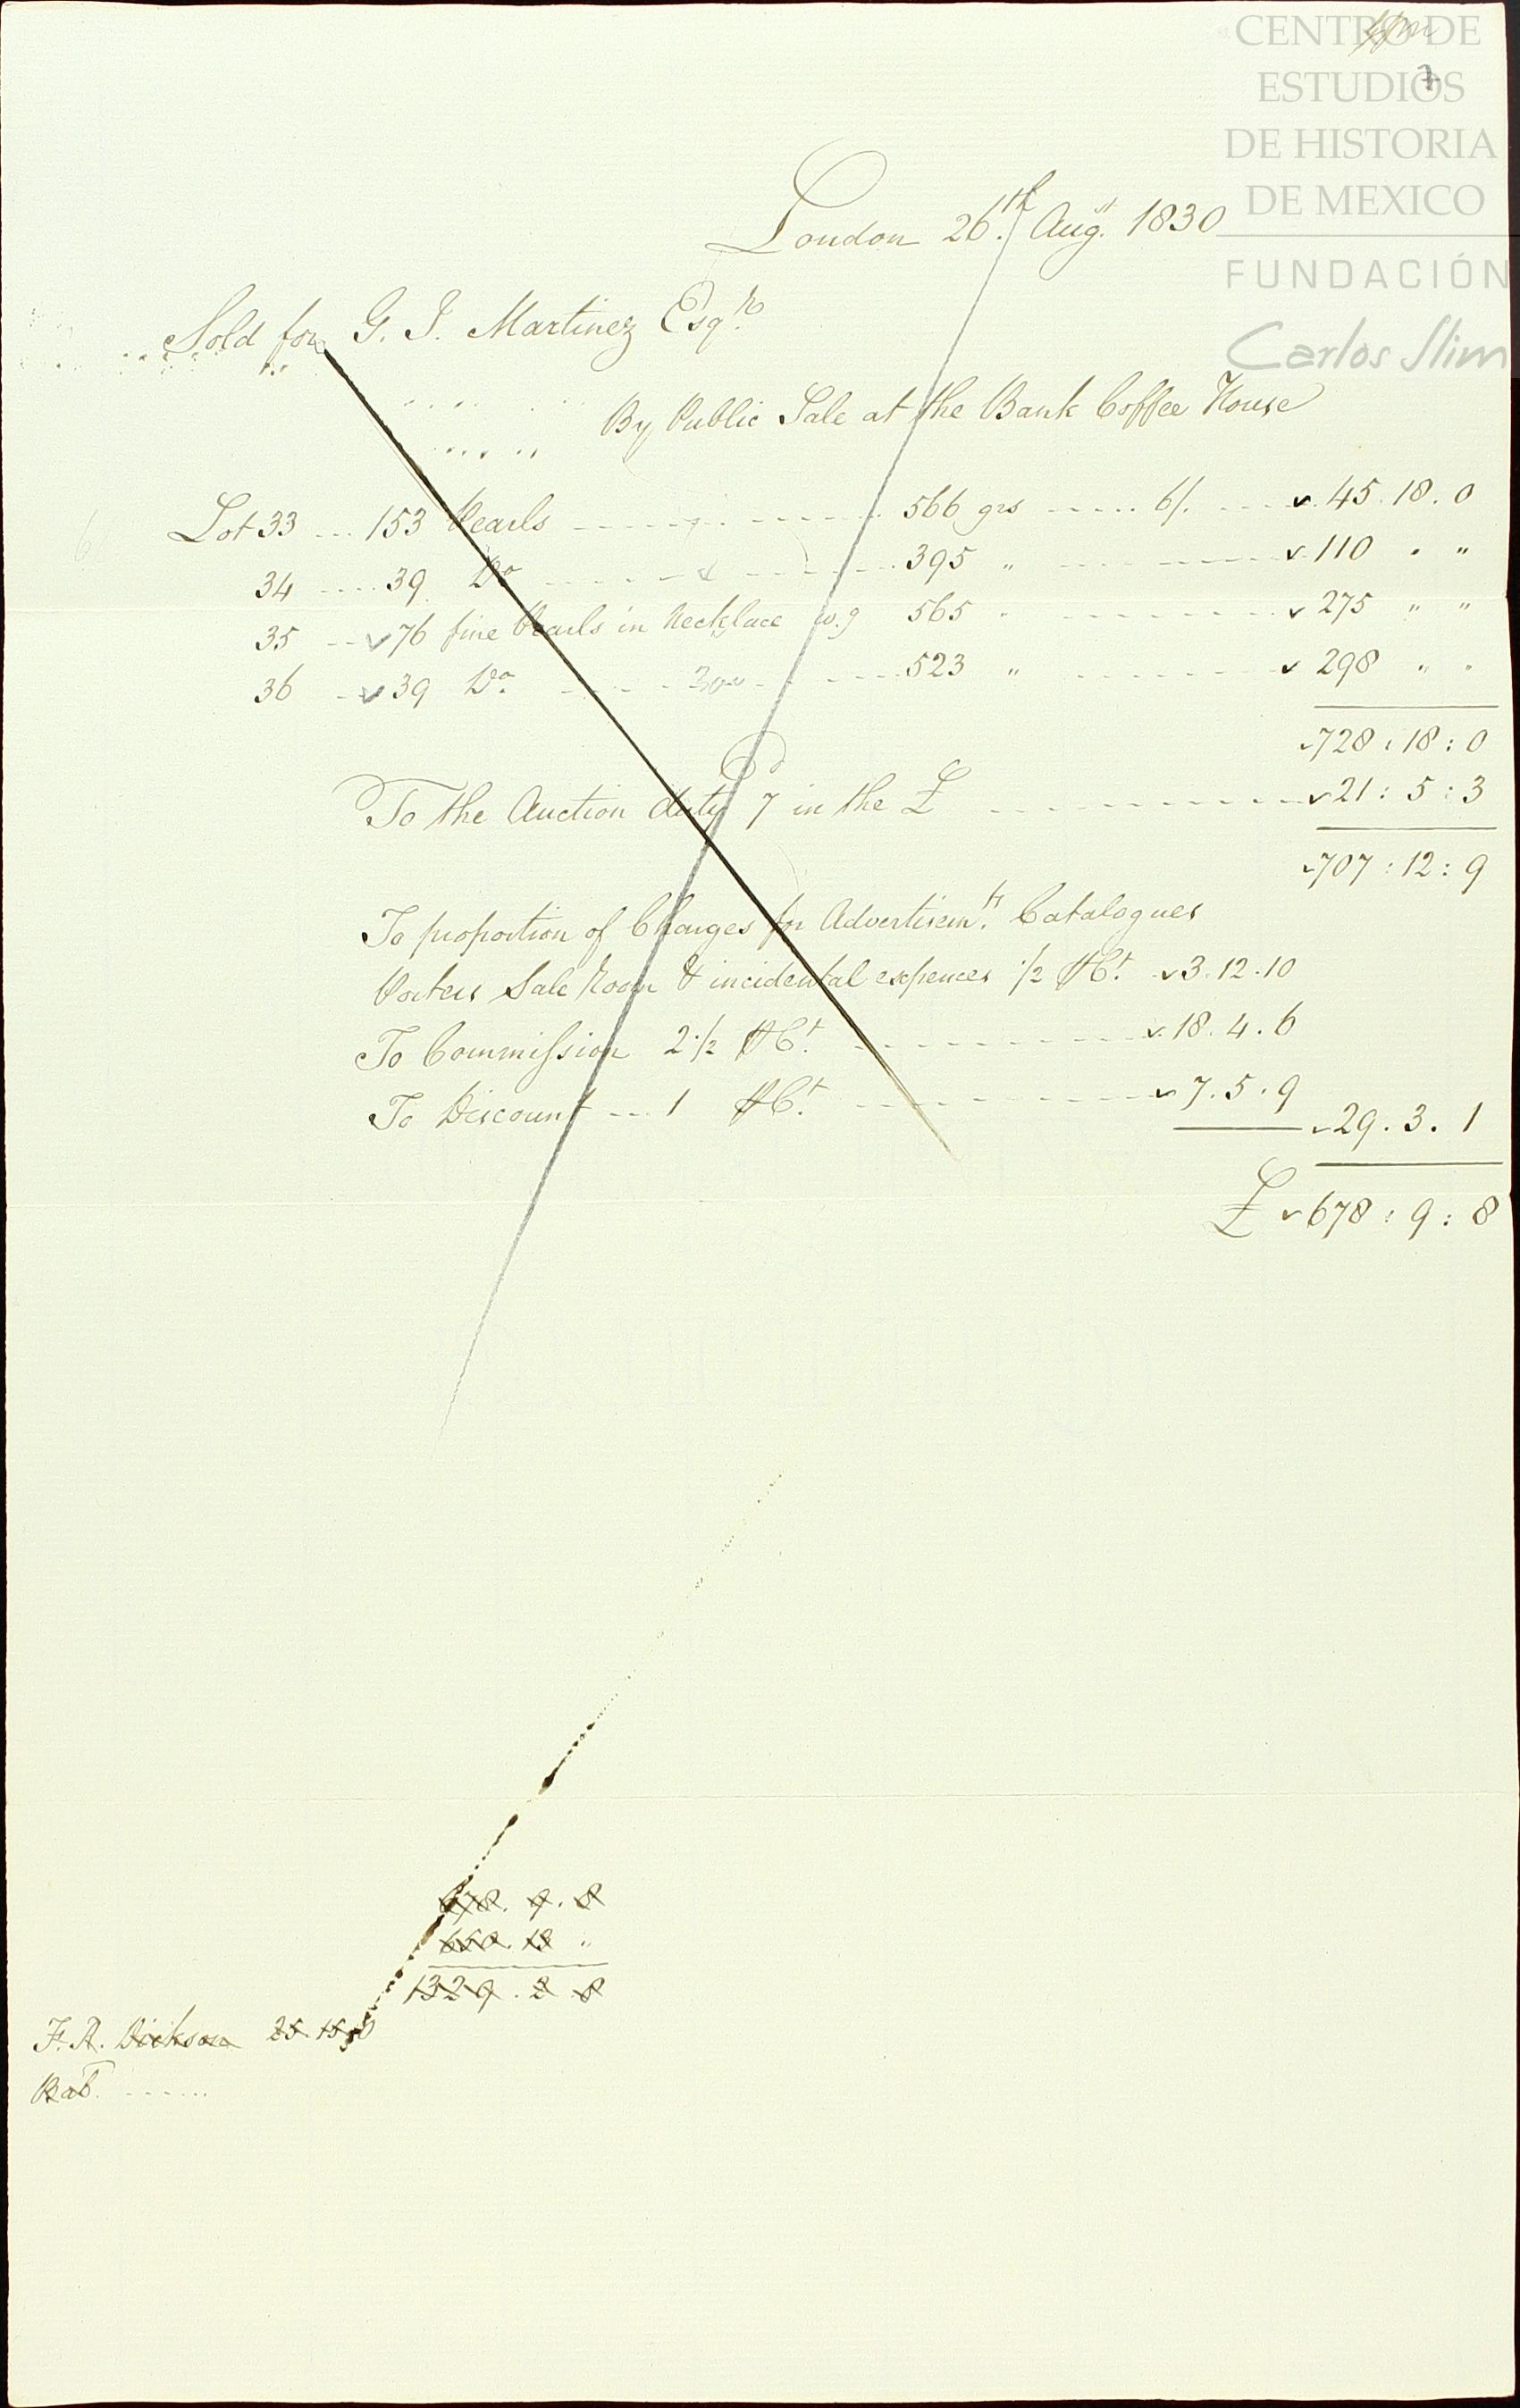 CENTRO DE
ESTUDIOS
DE HISTORIA
DE MEXICO
FUNDACIÓN
Carlos Slim
7
London 26th. Augst. 1830
Sold for G. J. Martinez Esqre.
By Public Sale at the Bank Coffee House
Lot 33 ... 153 Pearls ........ 566 grs ..... 6/. .... 45. 18. 0
34 .... 39 Do ........ 395 " ........ 110 " "
35 ... 76 fine Pearls in Necklace w.g 565 " ........ 275 " "
36 ... 39 Do. ........ 523 " ........ 298 " "
728 : 18 : 0
To the Auction duty 7d in the £ ........ 21 : 5 : 3
707 : 12 : 9
To proportion of Charges for Advertisemts. Catalogues
Porters Sale Room & incidental expences 1/2 ⅌ Ct. 3. 12. 10
To Commission 2 1/2 ⅌ Ct. ........ 18. 4. 6
To Discount ... 1 ⅌ Ct. ........ 7. 5. 9
29. 3. 1
£ 678 : 9 : 8
678. 9. 8
650. 13 "
1329. 2 8
F. R. Dickson 25. 15.